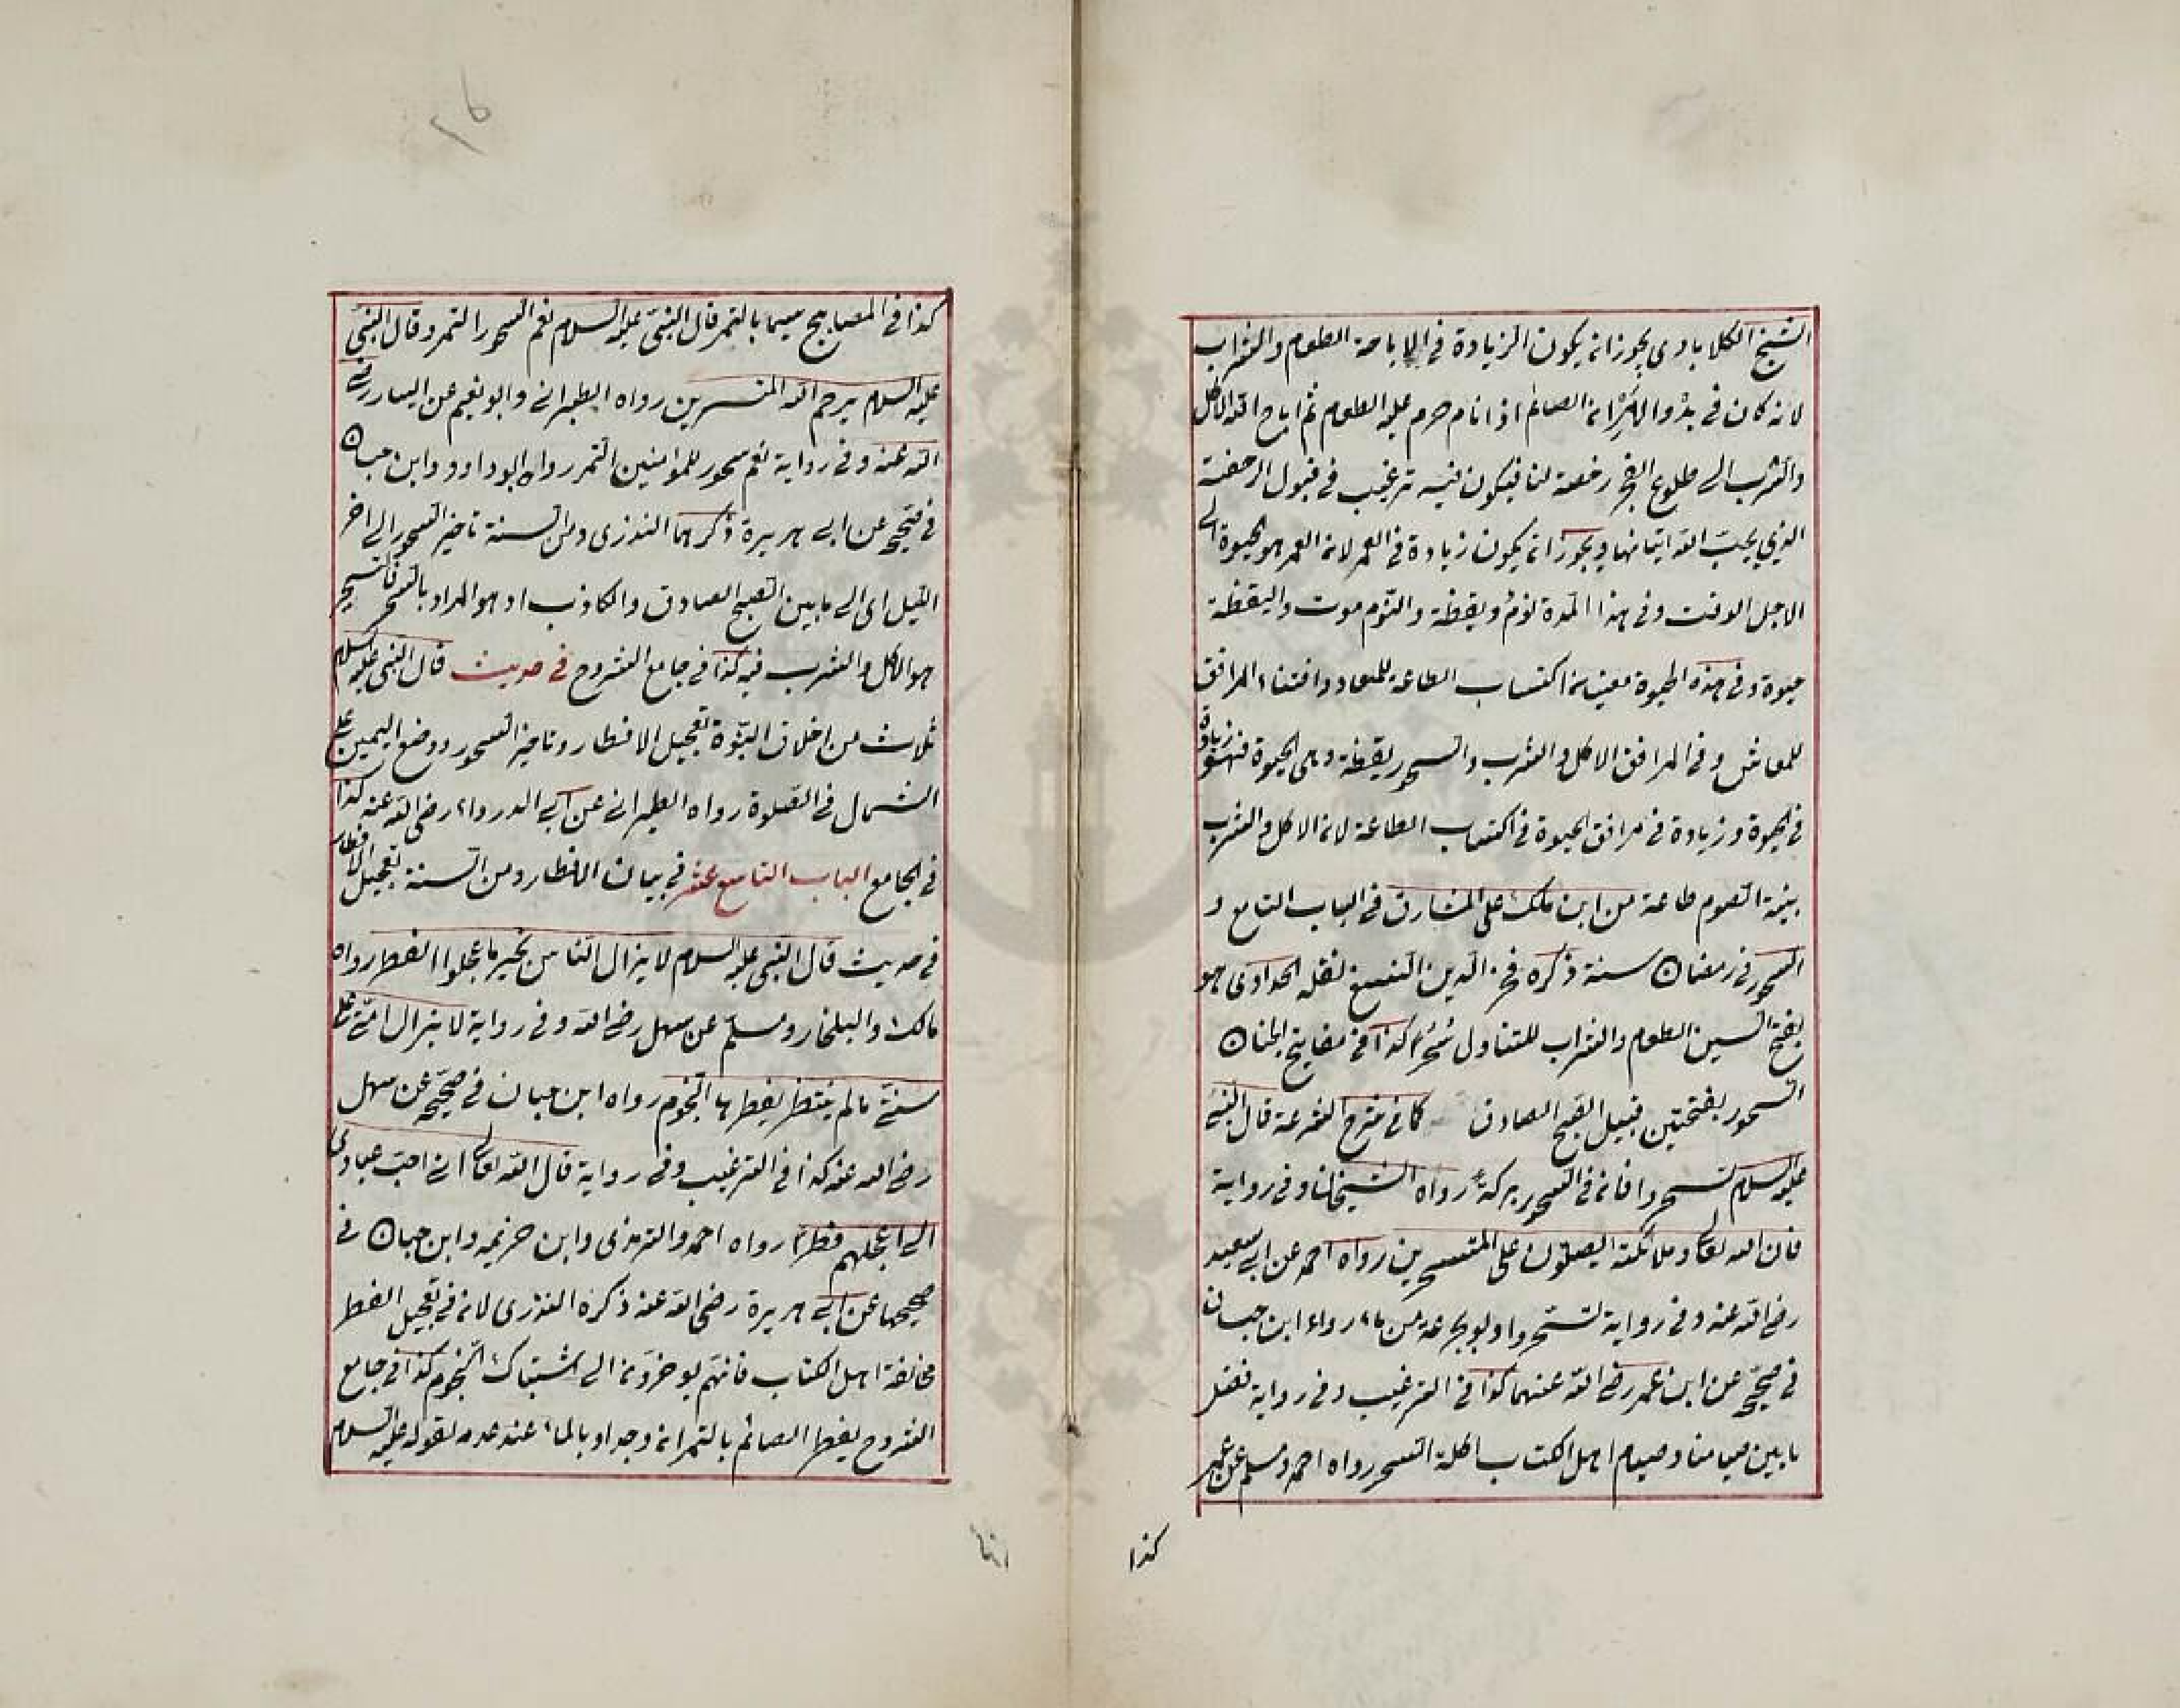 الشيخ الكلابادى يجوز ان يكون الزيادة فى اباحة الطعام والشراب
لانه كان فى بدؤ الامر ان الصائم اذا نام حرم عليه الطعام ثم اباح الله الاكل
والشرب الى طلوع الفجر رخصة لنا فيكون فيه ترغيب فى قبول الرخصة
الذى يحبّ الله اتيانها ويجوز ان يكون زيادة فى العمر لان العمر هو الحيوة الى
الاجل الموقت وفى هذا المدة نوم ويقظة والنّوم موت واليقظة
حيوة وفى هذه الحيوة معنيان اكتساب الطاعة للمعاد واقتناء المرافق
للمعاش وفى المرافق الاكل والشرب والسحور يقظة وهى الحيوة فهو زيادة
فى الحيوة وزيادة فى مرافق الحيوة فى اكتساب الطاعة لان الاكل والشرب
بنية الصوم طاعة من ابن ملك على المشارق فى الباب التاسع و
السحور فى رمضان سنة ذكره فخر الدين نقله الحدادى هو
بفتح السين الطعام والشراب للتناول سَحَرًا كذا فى مفاتيح الجنان
السحور بفتحتين قبيل الصبح الصادق كما فى شرح الشرعة قال النبى
عليه السلام تسحروا فان فى السحور بركة رواه الشيخان وفى رواية
فان الله تعالى وملائكته يصلّون على المتسحرين رواه احمد عن ابى سعيد
رضى الله عنه وفى رواية تسحّروا ولو بجرعة من ماء رواه ابن حبان
فى صحيحه عن ابن عمر رضى الله عنهما كذا فى الترغيب وفى رواية فصل
ما بين صيامنا وصيام اهل الكتاب اكلة السحر رواه احمد ومسلم عن
كذا
كذا فى المصابيح سيما بالتمر قال النبىّ عليه السلام نعم السحور التمر وقال النبى
عليه السلام يرحم الله المتسحرين رواه الطبرانى وابو نعيم عن رضى
الله عنه وفى رواية نعم سحور للمؤمنين التمر رواه ابو داود وابن حبان
فى صحيحه عن ابى هريرة ذكرهما المنذرى ومن السنة تاخير السحور الى اخر
الليل اى الى ما بين الصبح الصادق والكاذب اذ هو المراد بالسحر فالتسحر
هو الاكل والشرب فيه كذا فى جامع الشروح فى حديث قال النبى عليه السلام
ثلاث من اخلاق النبّوة تعجيل الافطار وتاخير السحور ووضع اليمين على
الشمال فى الصّلوة رواه الطبرانى عن ابى الدرداء رضى الله عنه كذا
فى الجامع الباب التاسع عشر فى بيان الافطار ومن السنة تعجيل الافطار
فى حديث قال النبى عليه السلام لا يزال الناس بخير ما عجلوا الفطر رواه
مالك والبخارى ومسلم عن سهل رضى الله وفى رواية لا يزال امّتى على
سنتى ما لم ينتظر بفطرها النجوم رواه ابن حبان فى صحيحه عن سهل
رضى الله عنه كذا فى الترغيب وفى رواية قال الله تعالى ان احبّ عبادى
الى اعجلهم فطرا رواه احمد والترمذى وابن خزيمه وابن حبان فى
صحيحهما عن ابى هريرة رضى الله عنه ذكره المنذرى لان فى تعجيل الفطر
مخالفة اهل الكتاب فانهم يوخرون الى اشتباك النجوم كذا فى جامع
الشروح يفطر الصائم بالتمر ان وجد او بالماء عند عدمه لقوله عليه السلام